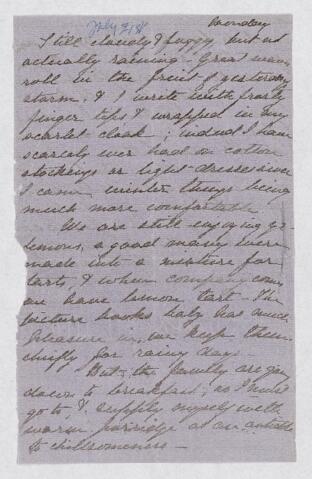 July 21st
Monday
Still cloudy & foggy, but not
actually raining. Great waves
roll in the fruit of yesterday's
storm, & I write with frosty
finger tips & wrapped in my
scarlet cloak; indeed I have
scarcely ever had on cotton
stockings or light dresses since
I came winter things being
much more comfortable.
We are still enjoying yr
lemons, a good many were
made into a mixture for
tarts, & when company comes
we have lemon tart. The
picture books baby has much
pleasure in, we keep them
chiefly for rainy days.
But the family are going
down to breakfast; so I must
go to & supply myself with
warm porridge as an antidote
to chillsomeness —